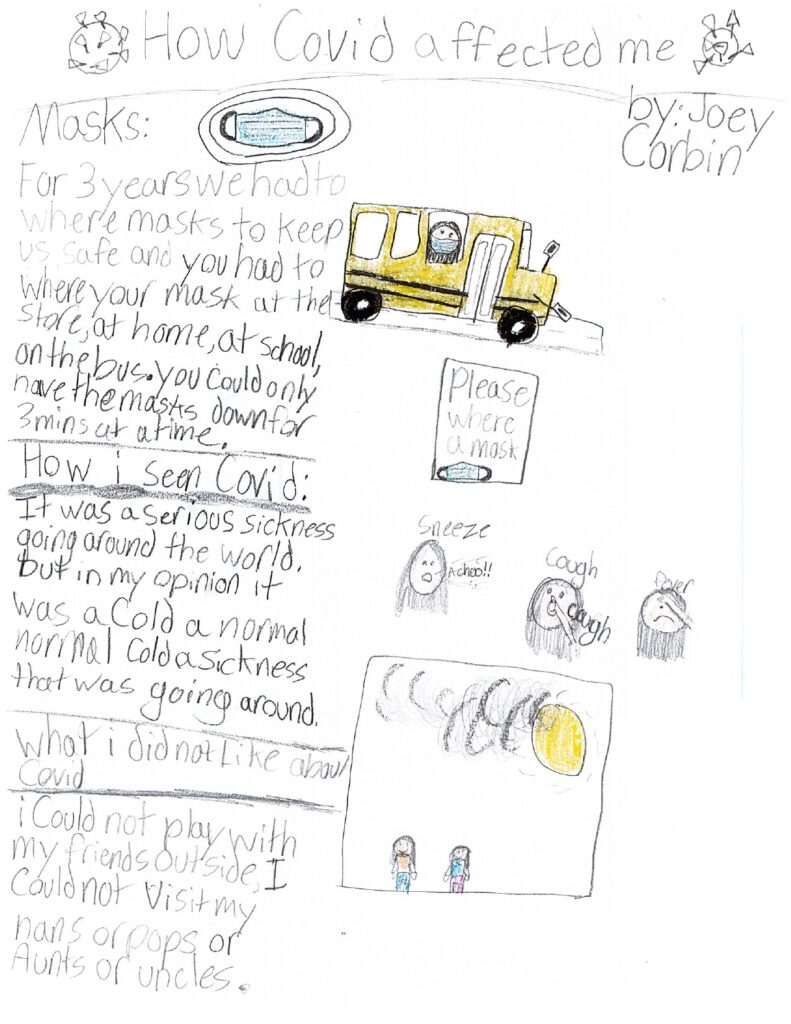 How Covid affected me
by: Joey
Corbin
Masks:
For 3 years we had to
where masks to keep
us safe and you had to
where your mask at the
store, at home, at school,
on the bus. you could only
have the masks down for
3 mins at a time.
Please
where
a mask
How i seen Covid:
It was a serious sickness
going around the world.
but in my opinion it
was a Cold a normal
normal Cold a sickness
that was going around.
Sneeze
Achoo!!
Cough
Cough
fever
what i did not Like about
Covid
i Could not play with
my friends outside, I
Could not Visit my
nans or pops or
Aunts or uncles.